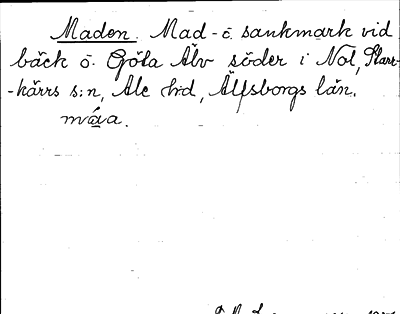 Maden. Mad- o. sankmark vid
bäck o. Göta Älv söder i Nol, Starr-
-kärrs s:n, Ale hd, Älfsborgs län.
máa.